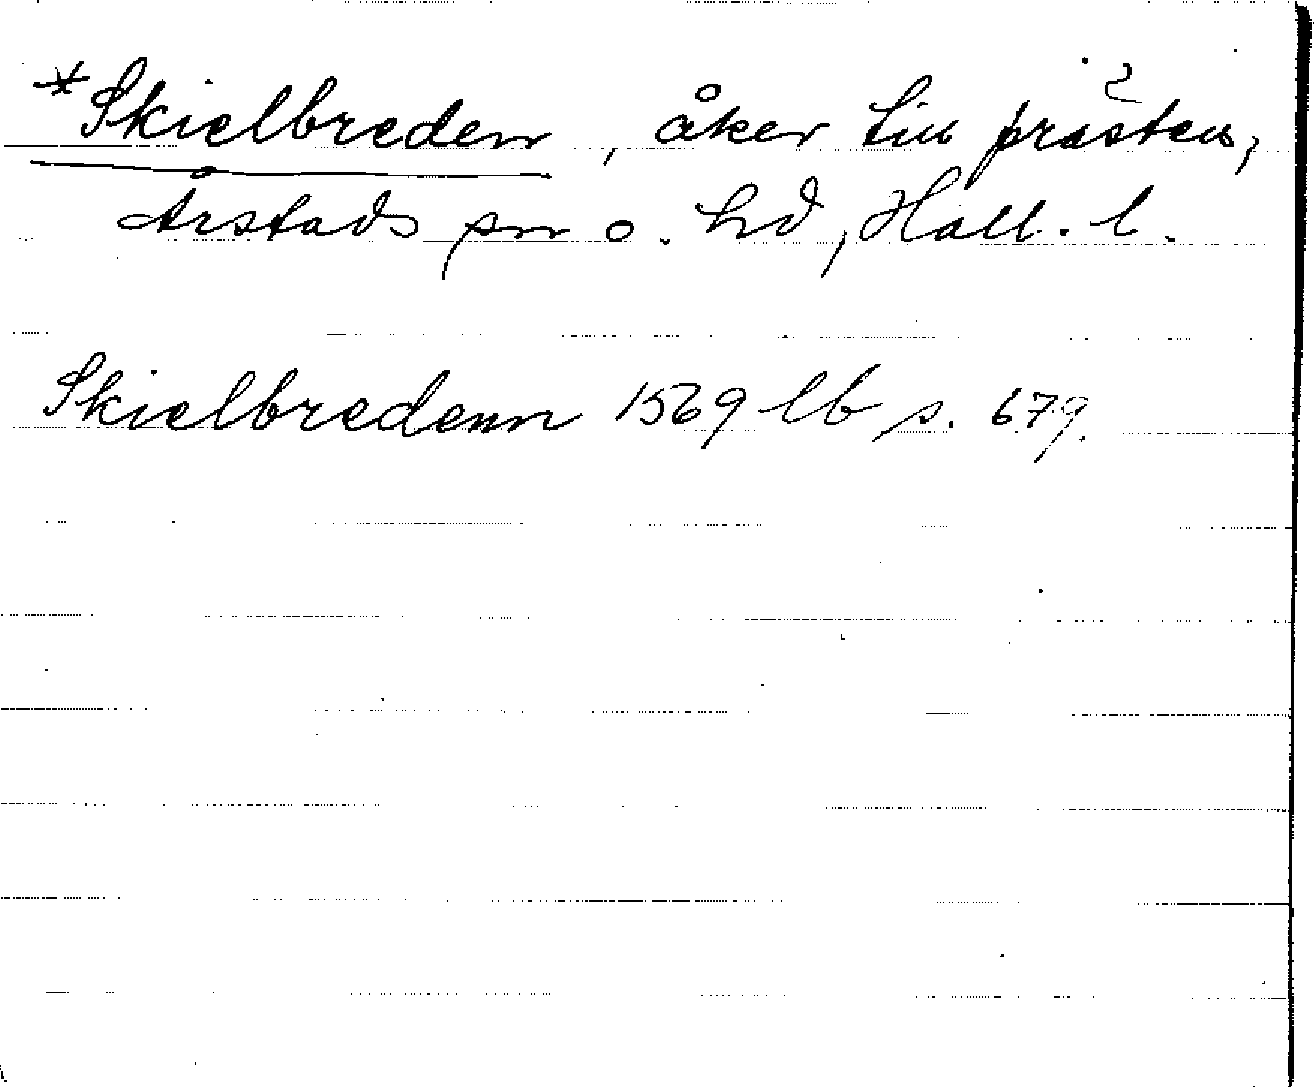 *Skielbreden, åker till prästens,
Årstads sn o. hd, Hall. l.
Skielbredenn 1569 lb s. 679.